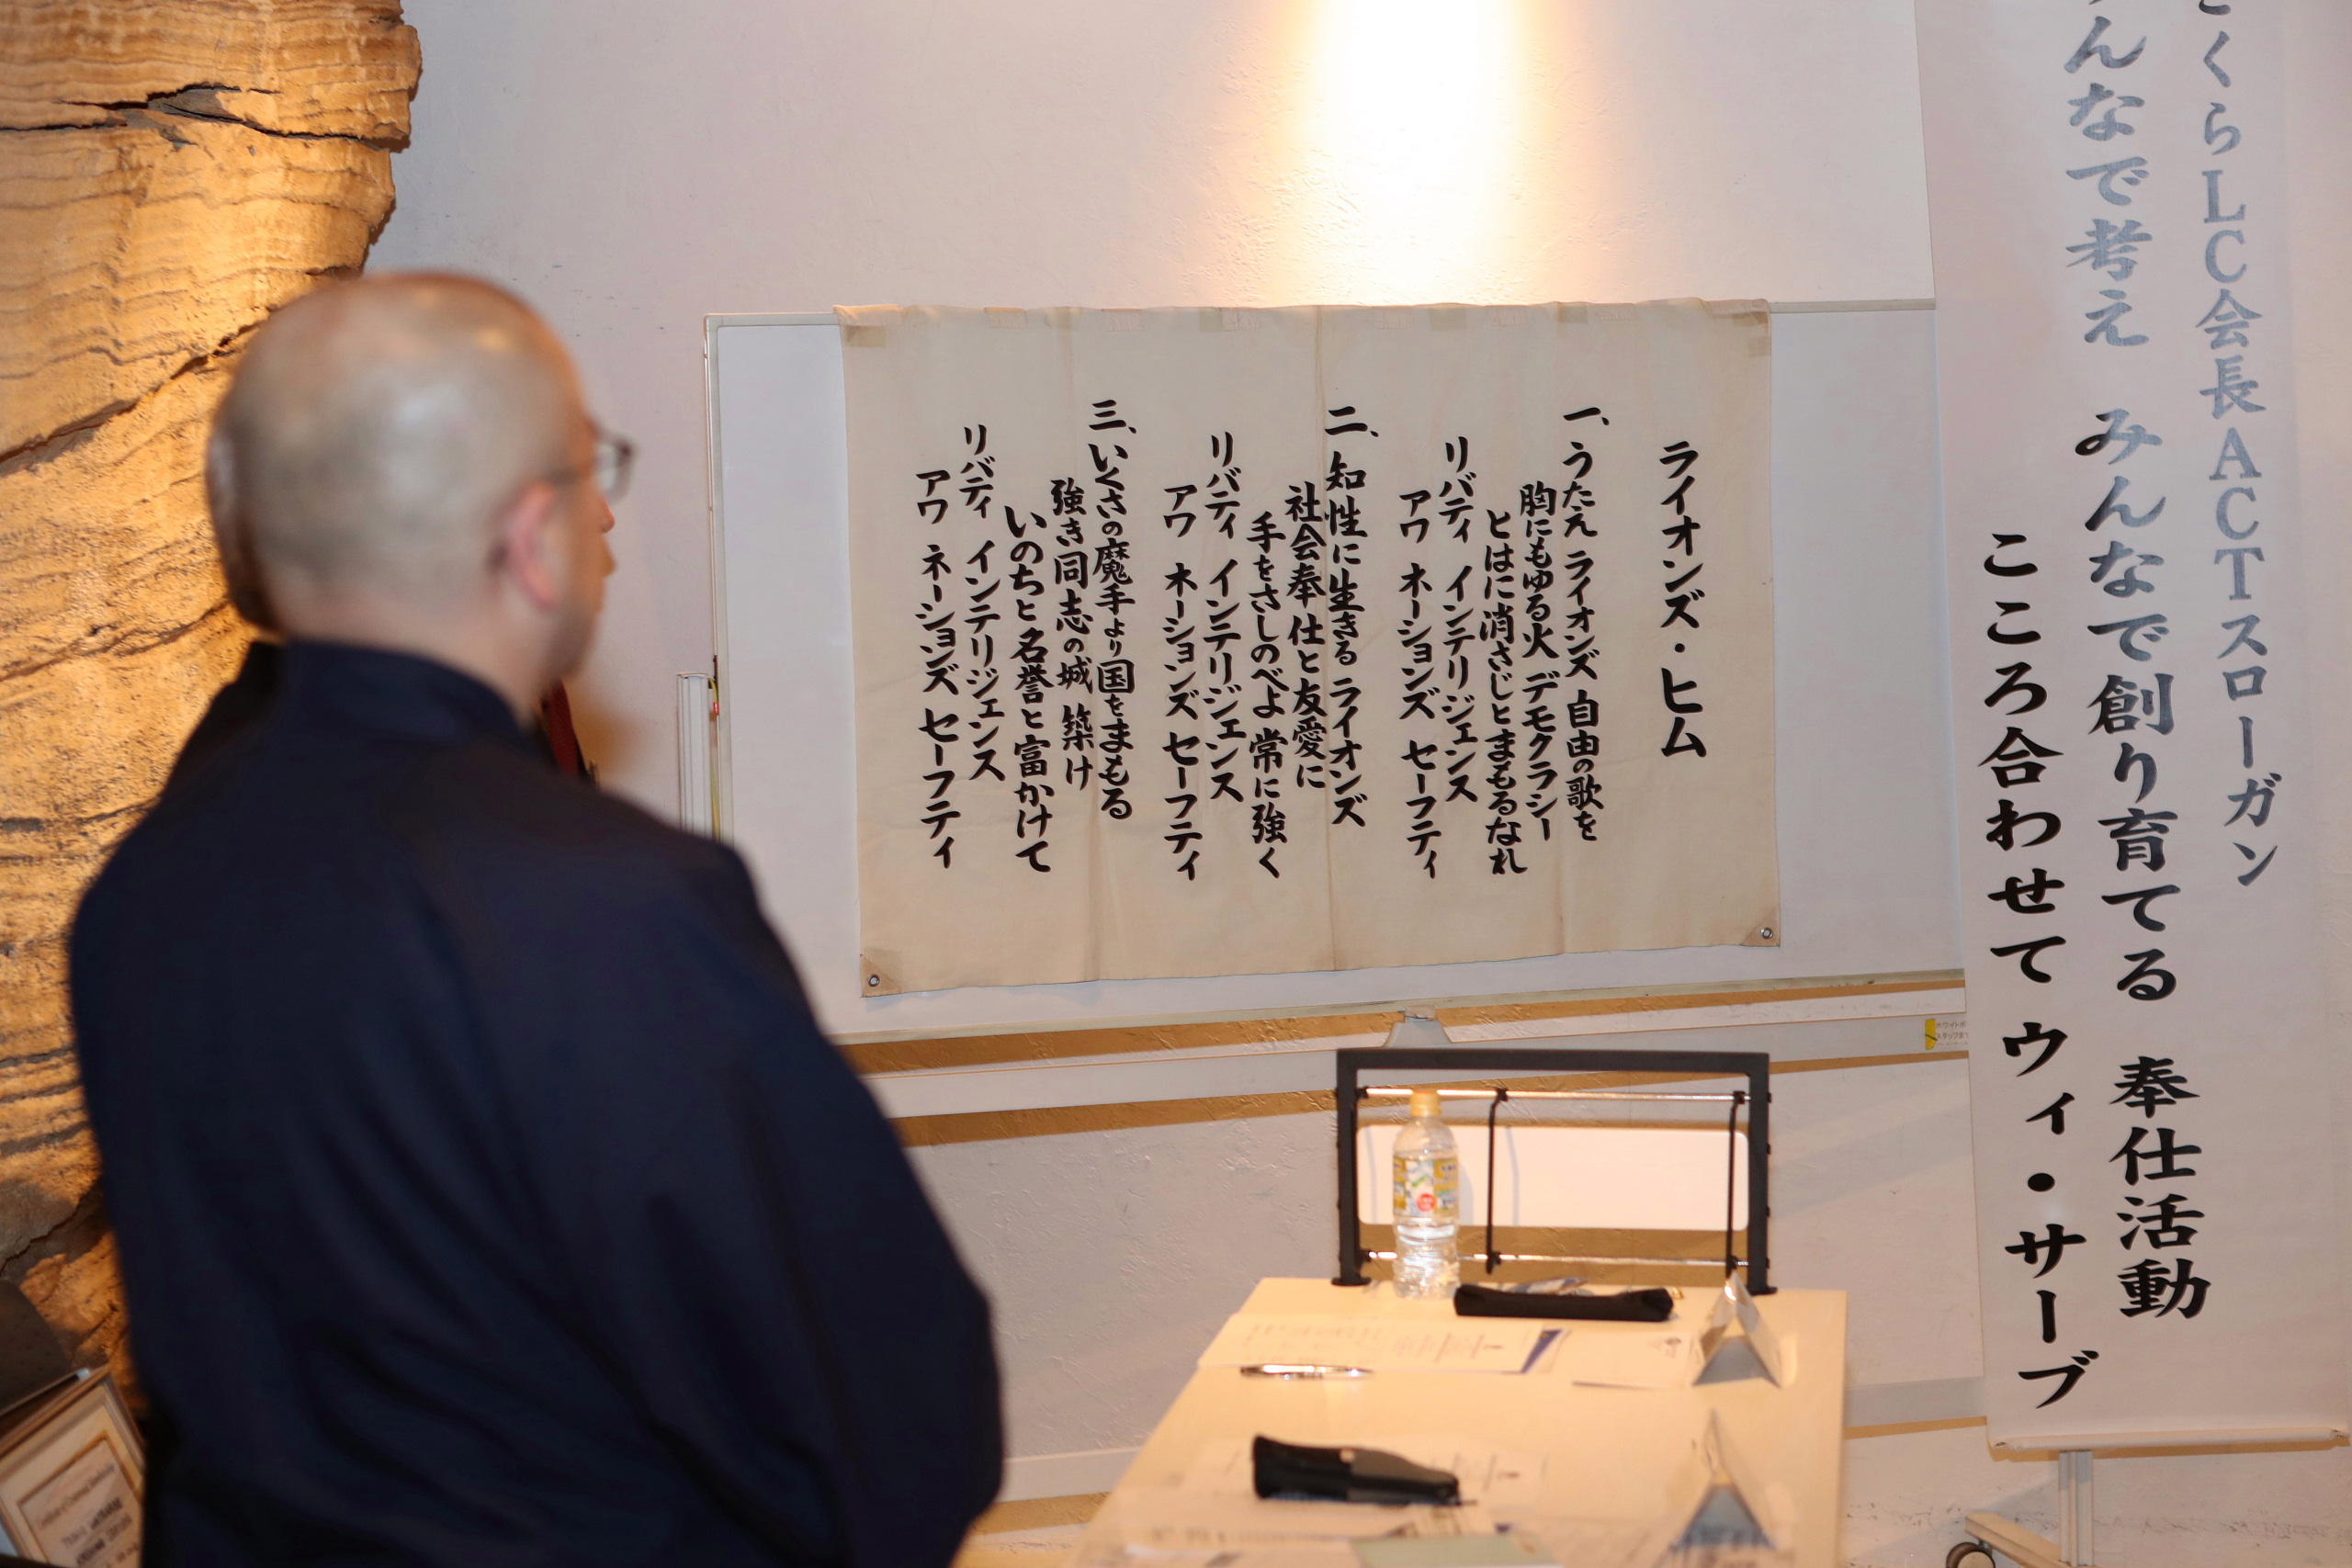 くらLC会長ACTスローガン
んなで考え みんなで創り育てる 奉仕活動
こころ合わせて ウィ・サーブ
ライオンズ・ヒム
一、うたえ ライオンズ 自由の歌を
胸にもゆる火 デモクラシー
とはに消さじと まもるなれ
リバティ インテリジェンス
アワ ネーションズ セーフティ
二、知性に生きる ライオンズ
社会奉仕と友愛に
手をさしのべよ 常に強く
リバティ インテリジェンス
アワ ネーションズ セーフティ
三、いくさの魔手より国をまもる
強き同志の城 築け
いのちと名誉と富かけて
リバティ インテリジェンス
アワ ネーションズ セーフティ